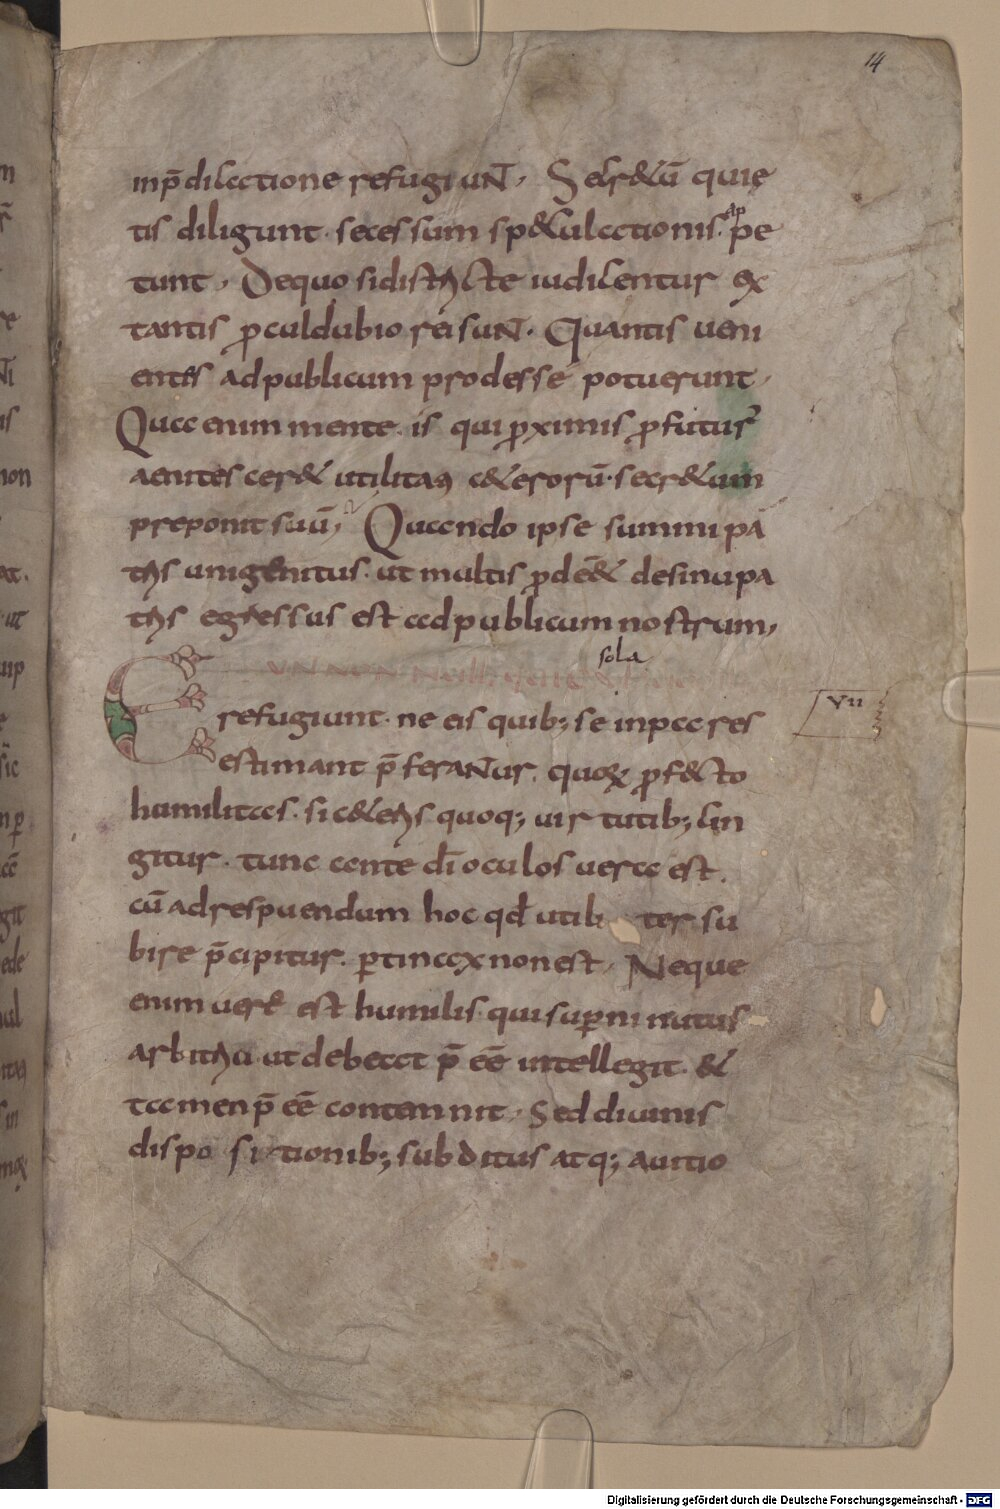 14
inp̄dicatione refugiunt. Secr&ū quię
tis diligunt. secessum sp&culationis. ap
pe
tunt. Dequo sidistricte iudicentur ex
tantis p̄culdubio rei sunt. Quantis ueni
entes adpublicum prodesse potuerunt.
Qua enim mente. is qui ꝓximis ꝓfuturꝰ
utilitati c&erorū. secr&um
preponit suū, Quando ipse summi pa
tris unigenitus. ut multis ꝓdeēt desinupa
tris egressus est adpublicum nostrum,
sola
refugiunt. ne eis quib; se inpares
VII
estimant p̄ferantur. quorꝝ ꝓf&to
humilitas. si c&eris quoq; uirtutib; cin
gitur. tunc ante dī oculos uera est.
cū adrespuendum hoc qđ utiliter su
bire p̄cipitur. ꝑtinax non est, Neque
enim uere est humilis. qui suꝑni nutus
arbitriū. ut debeat p̄ eē intellegit. &
tamen p̄ eē contemnit. Sed diuinis
disposi tionib; subditus atq; auitio
Digitalisierung gefördert durch die Deutsche Forschungsgemeinschaft - DFG